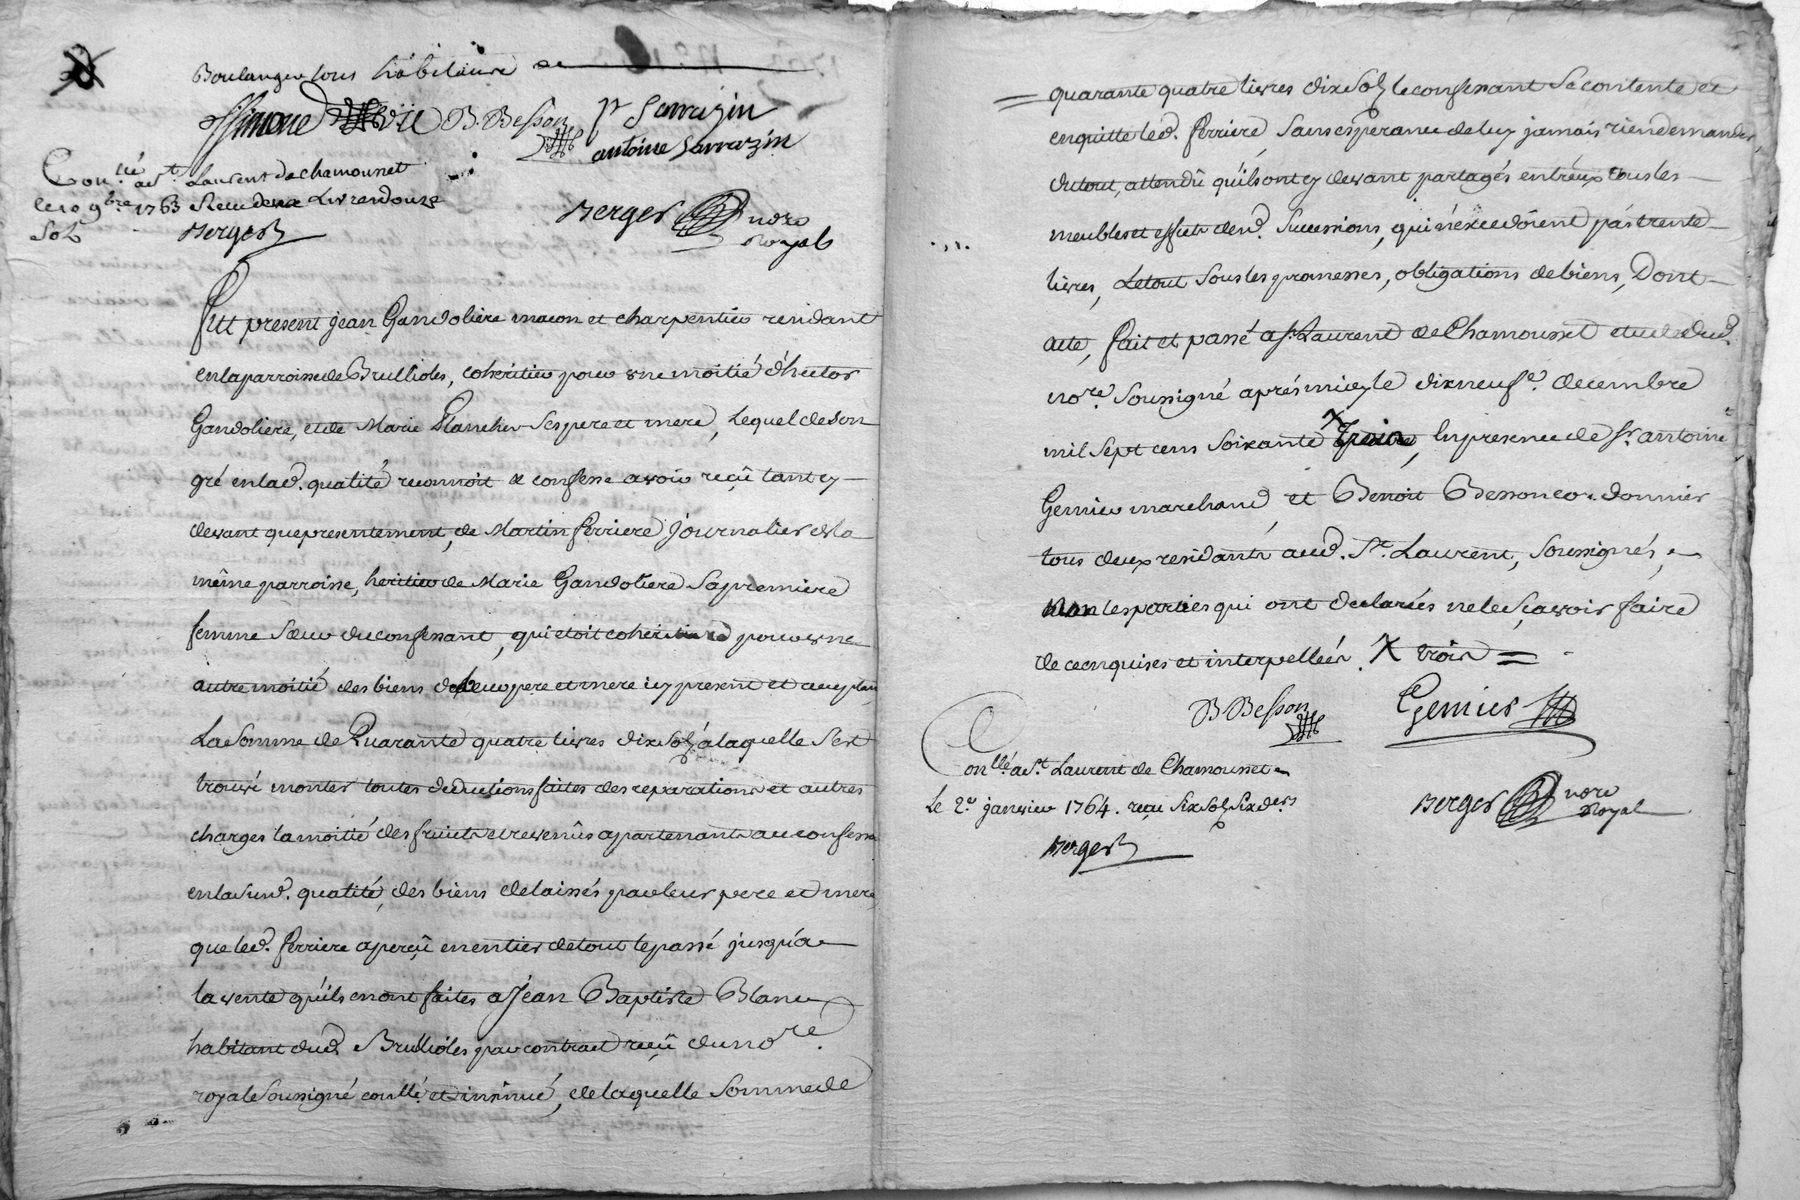 Boulanger tous habitans de
Simone B. Besson p Sarrazin
antoine Sarrazin
Con.llé a St Laurent de chamousset
le 10 9bre 1763 Receu deux Livres douze
Sols Berger
Berger nore
Royal
Fut present jean Gandoliere macon et charpentier residant
en la parroisse de Brullioles, coheritier pour une moitié d'hector
Gandoliere, et de Marie Blancher ses pere et mere, Lequel de son
gré en lad. qualité reconnoit & confesse avoir reçû tant cy
devant que presentement, de Martin ferriere Journalier de la
même parroisse, heritier de Marie Gandoliere Sa premiere
femme Sœur du confessant, qui etoit coheritiere pour une
autre moitié des biens de leur pere et mere icy present et acceptant
La Somme de Quarante quatre livres dix Sols a laquelle S'est
trouvé monter toutes deductions faites des reparations et autres
charges la moitié des fruits et revenûs apartenants au confessant
en la Susd. qualité, des biens delaissés par leur pere et mere
que led. ferriere a perçû en entier de tout le passé jusqu'a
la vente qu'ils en ont faites a Jean Baptiste Blanc
habitant dud. Brullioles par contract reçû du nore.
royal Soussigné con.llé et insinué, de laquelle Somme de
quarante quatre livres dix Sols le confessant Se contente et
en quitte led. ferriere, Sans esperance de luy jamais rien demander,
du tout, attendû qu'ils ont cy devant partagés entr'eux tous les
meubles et effets desd. Successions, qui n'excedoient pas trente
livres, Le tout Sous les promesses, obligations de biens, Dont
acte, fait et passé a St. Laurent de Chamousset etude dud.
nore. Soussigné après midy le dix neufe. decembre
mil Sept cens Soixante X trois, En presence de Sr. antoine
Genier marchand et Benoit Besson cordonnier
tous deux residants aud. St. Laurent, Soussignés,
non les parties qui ont declarées ne le Sçavoir faire
de ce enquises et interpellées. X trois =
B. Besson Genier
Con.llé a St. Laurent de Chamousset
Le 2e janvier 1764. reçu Six Sols Six ders
Berger
Berger nore
Royal